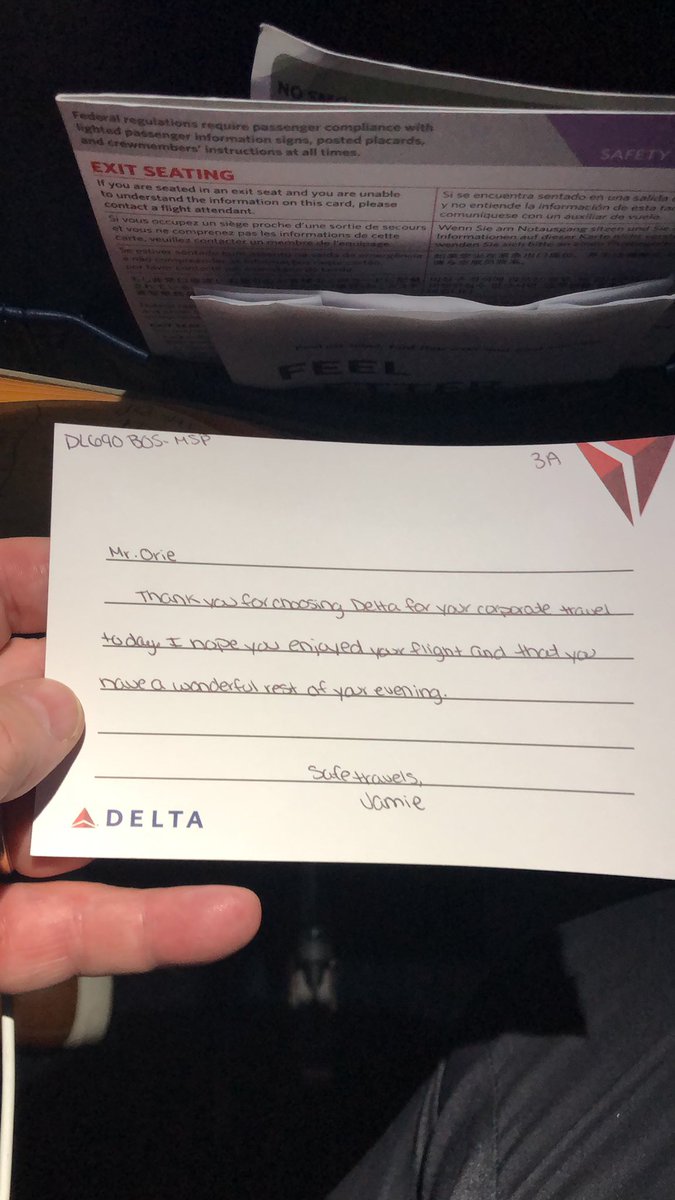 NO SM
Federal regulations require passenger compliance with
lighted passenger information signs, posted placards,
and crewmembers' instructions at all times.
SAFETY
EXIT SEATING
If you are seated in an exit seat and you are unable
to understand the information on this card, please
contact a flight attendant.
Si vous occupez un siège proche d'une sortie de secours
et vous ne comprenez pas les informations de cette
carte, veuillez contacter un membre de l'équipage.
Si se encuentra sentado en una salida
y no entiende la información de esta
comuníquese con un auxiliar de vuelo.
Wenn Sie am Notausgang sitzen und
Informationen auf dieser Karte nicht
wenden Sie sich bitte
FEEL
DL690 BOS-MSP
3A
Mr. Orie
Thank you for choosing Delta for your corporate travel
today. I hope you enjoyed your flight and that you
have a wonderful rest of your evening.
Safe travels,
Jamie
DELTA